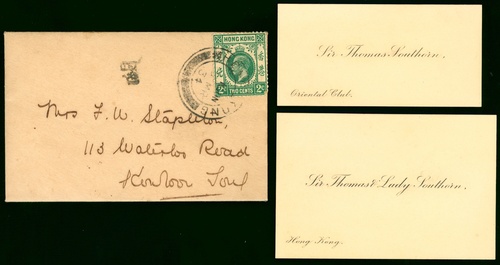 HONG KONG
TWO CENTS
2c
Mrs F. W. Stapleton,
113 Waterloo Road
Kowloon Tong
Sir Thomas Southorn.
Oriental Club.
Sir Thomas & Lady Southorn.
Hong Kong.